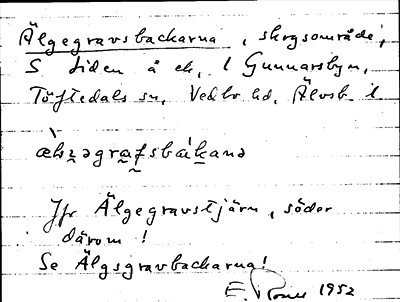 Älgegravsbackarna, skogsområde,
S sidan å ek, i Gunnarsbyn,
Töftedals sn, Vedbo hd, Älvsb. l
Jfr Älgegravstjärn, söder
därom!
Se Älgsgravbackarna!
E. 1952